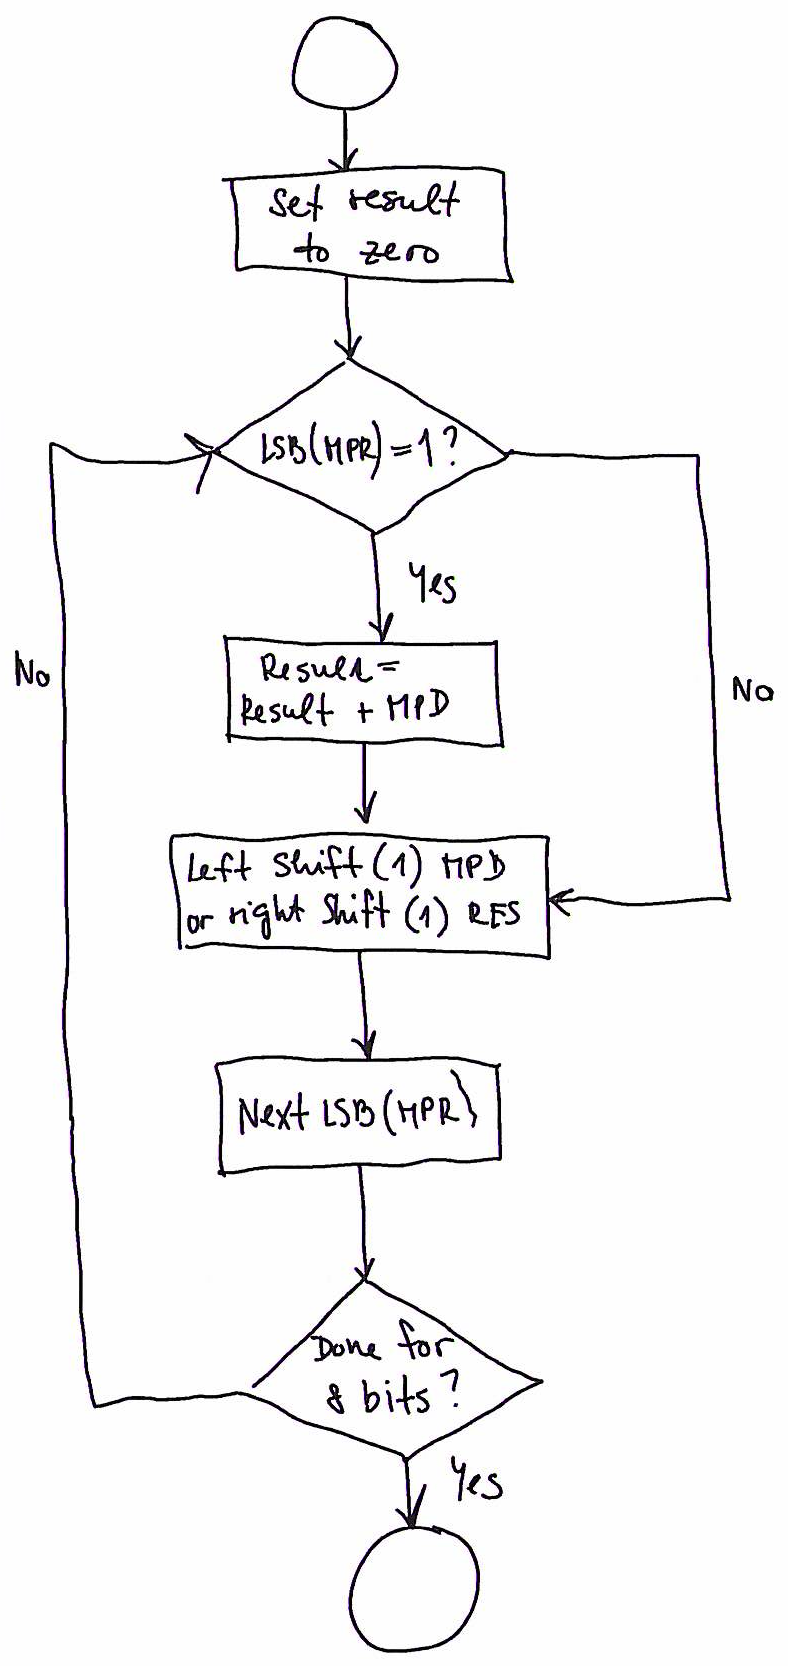 Set result
to zero
LSB(MPR)=1?
Yes
No
No
Result=
Result + MPD
Left Shift (1) MPD
or right Shift (1) RES
Next LSB(MPR)
Done for
8 bits?
Yes